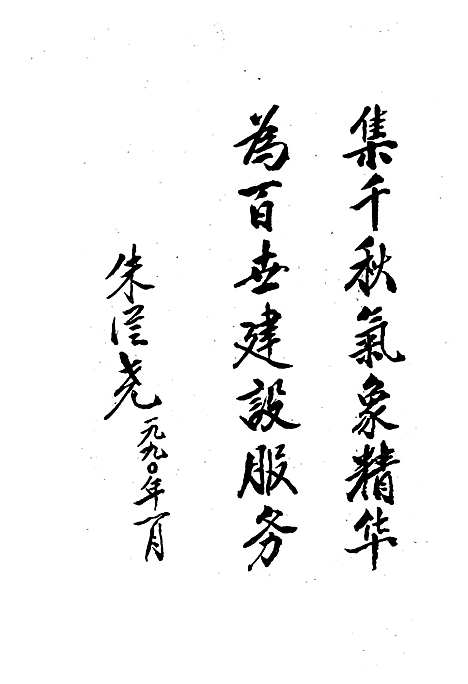 集千秋氣象精华
为百世建設服务
朱滢尧
一九九〇年一月